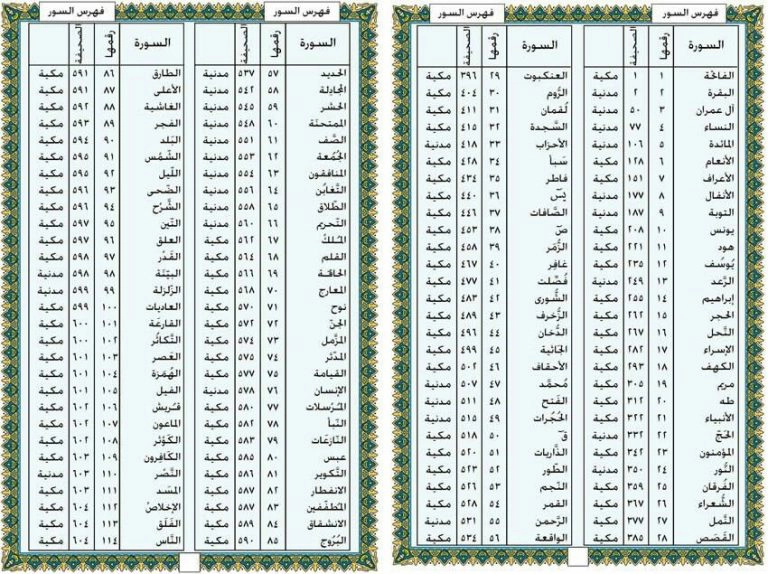 فهرس السور
السورة رقمها الصحيفة
الفاتحة ١ ١ مكية
البقرة ٢ ٢ مدنية
آل عمران ٣ ٥٠ مدنية
النساء ٤ ٧٧ مدنية
المائدة ٥ ١٠٦ مدنية
الأنعام ٦ ١٢٨ مكية
الأعراف ٧ ١٥١ مكية
الأنفال ٨ ١٧٧ مدنية
التوبة ٩ ١٨٧ مدنية
يونس ١٠ ٢٠٨ مكية
هود ١١ ٢٢١ مكية
يُوسُف ١٢ ٢٣٥ مكية
الرَّعد ١٣ ٢٤٩ مدنية
إبراهيم ١٤ ٢٥٥ مكية
الحجر ١٥ ٢٦٢ مكية
النَّحل ١٦ ٢٦٧ مكية
الإسراء ١٧ ٢٨٢ مكية
الكهف ١٨ ٢٩٣ مكية
مريم ١٩ ٣٠٥ مكية
طه ٢٠ ٣١٢ مكية
الأنبياء ٢١ ٣٢٢ مكية
الحَجّ ٢٢ ٣٣٢ مدنية
المؤمنون ٢٣ ٣٤٢ مكية
النُّور ٢٤ ٣٥٠ مدنية
الفُرقان ٢٥ ٣٥٩ مكية
الشُّعراء ٢٦ ٣٦٧ مكية
النَّمل ٢٧ ٣٧٧ مكية
القَصَص ٢٨ ٣٨٥ مكية
فهرس السور
السورة رقمها الصحيفة
العنكبوت ٢٩ ٣٩٦ مكية
الرُّوم ٣٠ ٤٠٤ مكية
لُقمان ٣١ ٤١١ مكية
السَّجدة ٣٢ ٤١٥ مكية
الأحزاب ٣٣ ٤١٨ مدنية
سَبَأ ٣٤ ٤٢٨ مكية
فاطر ٣٥ ٤٣٤ مكية
يٓس ٣٦ ٤٤٠ مكية
الصَّافات ٣٧ ٤٤٦ مكية
صٓ ٣٨ ٤٥٣ مكية
الزُّمَر ٣٩ ٤٥٨ مكية
غافِر ٤٠ ٤٦٧ مكية
فُصِّلَت ٤١ ٤٧٧ مكية
الشُّورى ٤٢ ٤٨٣ مكية
الزُّخرف ٤٣ ٤٨٩ مكية
الدُّخان ٤٤ ٤٩٦ مكية
الجَاثية ٤٥ ٤٩٩ مكية
الأحقاف ٤٦ ٥٠٢ مكية
مُحمَّد ٤٧ ٥٠٧ مدنية
الفَتح ٤٨ ٥١١ مدنية
الحُجُرات ٤٩ ٥١٥ مدنية
قٓ ٥٠ ٥١٨ مكية
الذَّاريات ٥١ ٥٢٠ مكية
الطُّور ٥٢ ٥٢٣ مكية
النَّجم ٥٣ ٥٢٦ مكية
القمر ٥٤ ٥٢٨ مكية
الرَّحمن ٥٥ ٥٣١ مدنية
الواقعة ٥٦ ٥٣٤ مكية
فهرس السور
السورة رقمها الصحيفة
الحديد ٥٧ ٥٣٧ مدنية
المجَادِلة ٥٨ ٥٤٢ مدنية
الحشر ٥٩ ٥٤٥ مدنية
الممتحنَة ٦٠ ٥٤٨ مدنية
الصَّف ٦١ ٥٥١ مدنية
الجُمُعة ٦٢ ٥٥٣ مدنية
المنافقون ٦٣ ٥٥٤ مدنية
التَّغَابُن ٦٤ ٥٥٦ مدنية
الطَّلاق ٦٥ ٥٥٨ مدنية
التحريم ٦٦ ٥٦٠ مدنية
المُلكُ ٦٧ ٥٦٢ مكية
القلم ٦٨ ٥٦٤ مكية
الحاقـَّة ٦٩ ٥٦٦ مكية
المعارج ٧٠ ٥٦٨ مكية
نوح ٧١ ٥٧٠ مكية
الجنّ ٧٢ ٥٧٢ مكية
المزَّمل ٧٣ ٥٧٤ مكية
المدَّثر ٧٤ ٥٧٥ مكية
القيامة ٧٥ ٥٧٧ مكية
الإنسان ٧٦ ٥٧٨ مدنية
المُرسَلات ٧٧ ٥٨٠ مكية
النَّبأ ٧٨ ٥٨٢ مكية
النّازعَات ٧٩ ٥٨٣ مكية
عبس ٨٠ ٥٨٥ مكية
التَّكوير ٨١ ٥٨٦ مكية
الانفطار ٨٢ ٥٨٧ مكية
المطَفِّفين ٨٣ ٥٨٧ مكية
الانشقاق ٨٤ ٥٨٩ مكية
البُرُوج ٨٥ ٥٩٠ مكية
فهرس السور
السورة رقمها الصحيفة
الطارق ٨٦ ٥٩١ مكية
الأعلى ٨٧ ٥٩١ مكية
الغاشية ٨٨ ٥٩٢ مكية
الفجر ٨٩ ٥٩٣ مكية
البَلد ٩٠ ٥٩٤ مكية
الشَّمْس ٩١ ٥٩٥ مكية
اللَّيل ٩٢ ٥٩٥ مكية
الضّحى ٩٣ ٥٩٦ مكية
الشَّرْح ٩٤ ٥٩٦ مكية
التّين ٩٥ ٥٩٧ مكية
العلق ٩٦ ٥٩٧ مكية
القَدْر ٩٧ ٥٩٨ مكية
البيّنَة ٩٨ ٥٩٨ مدنية
الزَّلزلة ٩٩ ٥٩٩ مدنية
العاديات ١٠٠ ٥٩٩ مكية
القارعَة ١٠١ ٦٠٠ مكية
التَّكاثُر ١٠٢ ٦٠٠ مكية
العَصر ١٠٣ ٦٠١ مكية
الهُمَزَة ١٠٤ ٦٠١ مكية
الفيل ١٠٥ ٦٠١ مكية
قُريش ١٠٦ ٦٠٢ مكية
الماعون ١٠٧ ٦٠٢ مكية
الكَوْثر ١٠٨ ٦٠٢ مكية
الكَافِرون ١٠٩ ٦٠٣ مكية
النَّصْر ١١٠ ٦٠٣ مدنية
المَسَد ١١١ ٦٠٣ مكية
الإخلاصْ ١١٢ ٦٠٤ مكية
الفَلَق ١١٣ ٦٠٤ مكية
النَّاس ١١٤ ٦٠٤ مكية